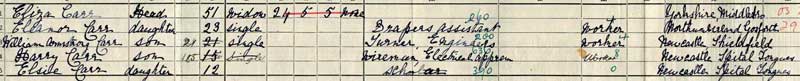 Eliza Carr Head 51 Widow 24 5 5 none Yorkshire Middlesbro 03
Eleanor Carr daughter 23 single Drapers Assistant 260 Worker Northumberland Gosforth 29
William Armstrong Carr son 21 21 single Turner, Engineers 200 Worker Newcastle Shieldfield
Harry Carr son 15 single Wireman Electrical 030 Worker 8 Newcastle Spital Tongues
Elsie Carr daughter 12 scholar 390 0 Newcastle Spital Tongues